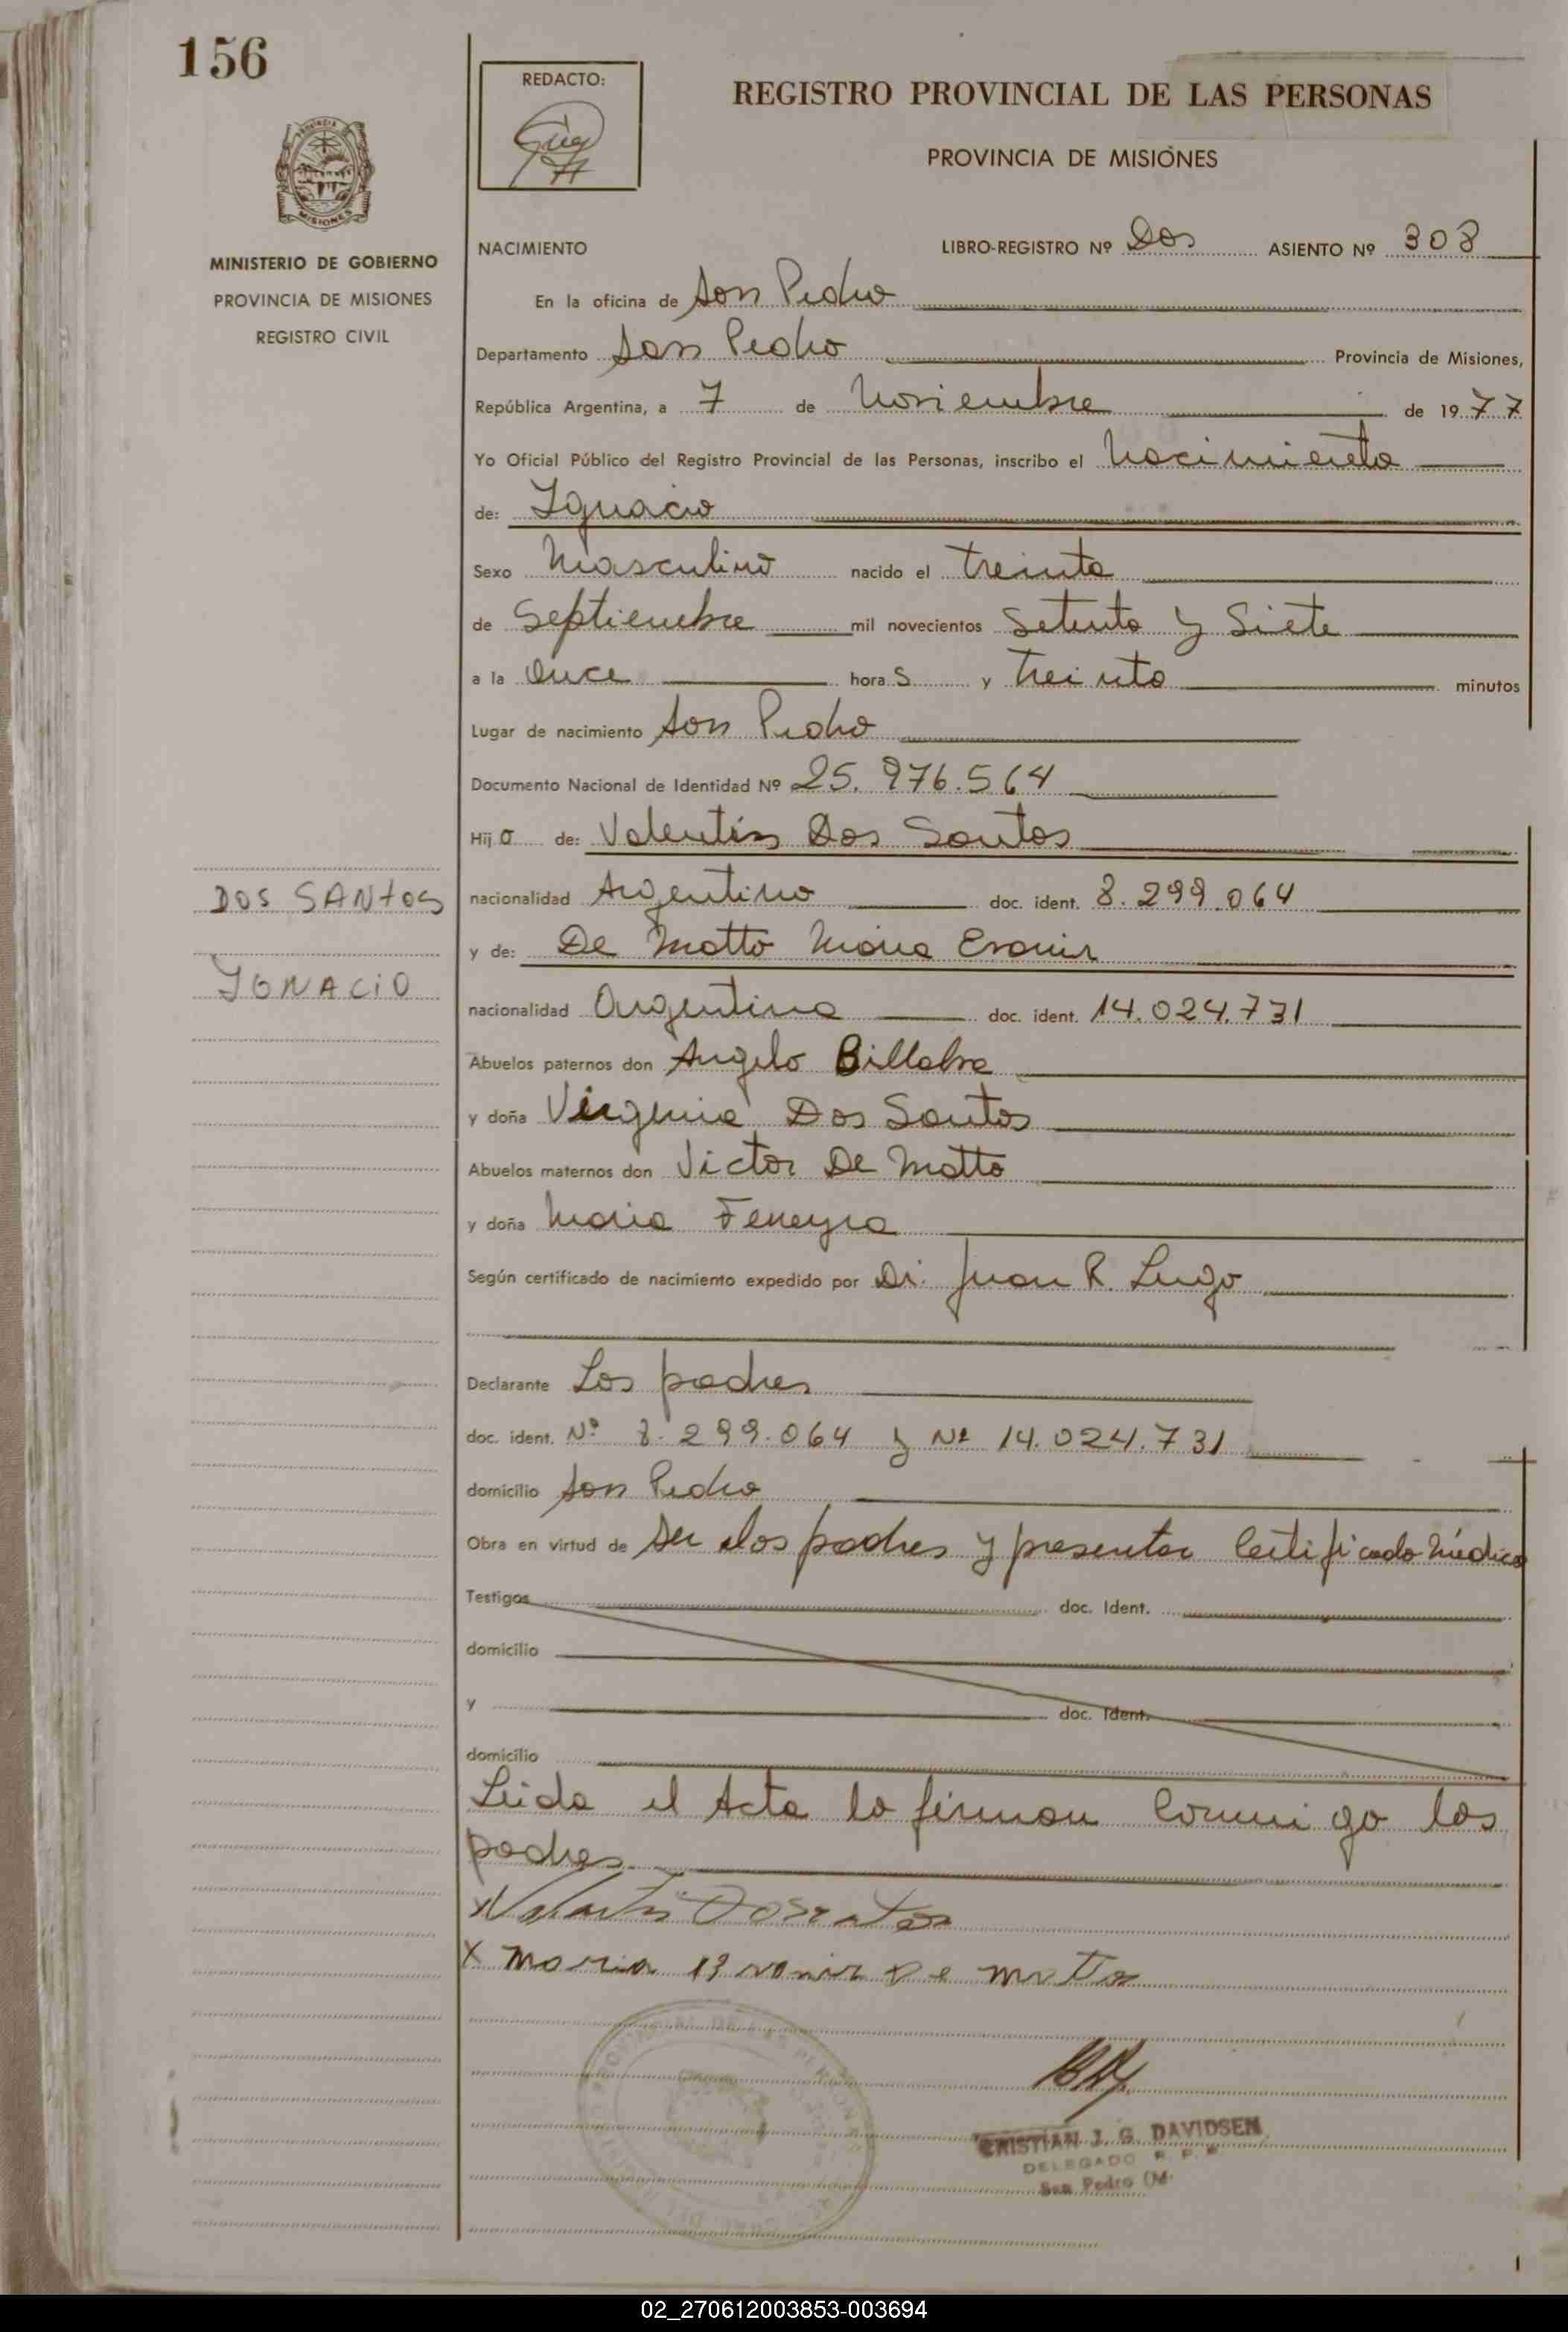 156
REDACTO:
REGISTRO PROVINCIAL DE LAS PERSONAS
PROVINCIA DE MISIONES
MISIONES
MINISTERIO DE GOBIERNO
PROVINCIA DE MISIONES
REGISTRO CIVIL
NACIMIENTO LIBRO-REGISTRO Nº Dos ASIENTO Nº 308
En la oficina de San Pedro
Departamento San Pedro Provincia de Misiones,
República Argentina, a 7 de Noviembre de 1977
Yo Oficial Público del Registro Provincial de las Personas, inscribo el Nacimiento
de: Ignacio
Sexo Masculino nacido el treinta
de Septiembre mil novecientos Setenta y Siete
a la Once horas y treinta minutos
Lugar de nacimiento San Pedro
Documento Nacional de Identidad Nº 25.976.564
Hijo de: Valentin Dos Santos
DOS SANTOS
nacionalidad Argentino doc. ident. 8.299.064
y de: De Matto Maria Eronir
IGNACIO
nacionalidad Argentina doc. ident. 14.024.731
Abuelos paternos don Angelo Billalva
y doña Virginia Dos Santos
Abuelos maternos don Victor De Matto
y doña Maria Ferreyra
Según certificado de nacimiento expedido por Dr. Juan R. Lugo
Declarante Los padres
doc. ident. Nº 8.299.064 y Nº 14.024.731
domicilio San Pedro
Obra en virtud de ser los padres y presentar Certificado Médico
Testigos doc. Ident.
domicilio
y doc. Ident.
domicilio
Leida el Acta la firman Conmigo los
padres
x Valentin Dos Santos
x maria eronir De matto
CRISTIAN J. G. DAVIDSEN
DELEGADO R. P. P.
San Pedro (M
02_270612003853-003694